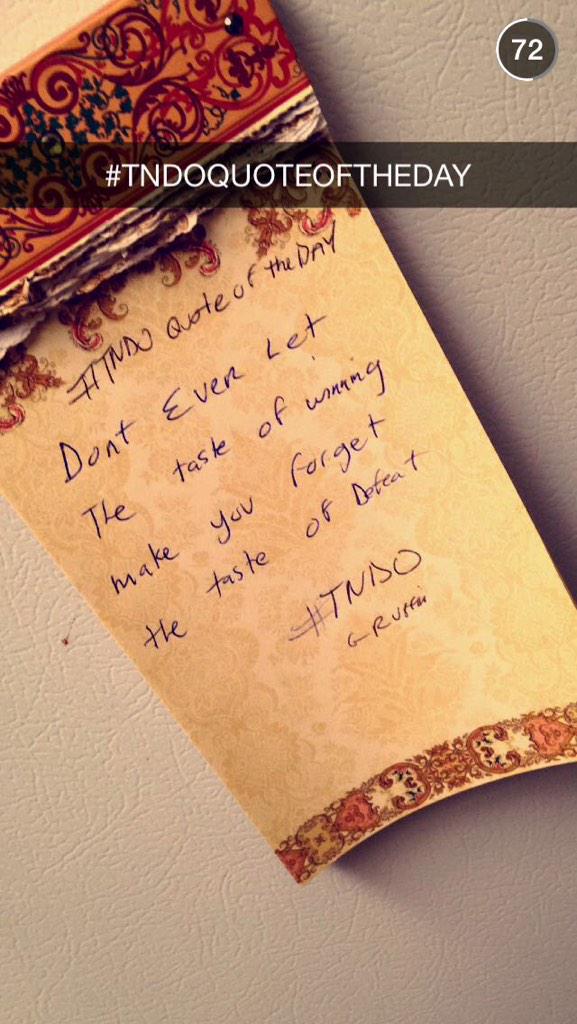 72
#TNDOQUOTEOFTHEDAY
#TNDO Quote of the DAY
Dont Ever Let
The taste of winning
make you forget
the taste of Defeat
#TNDO
G Ruffin